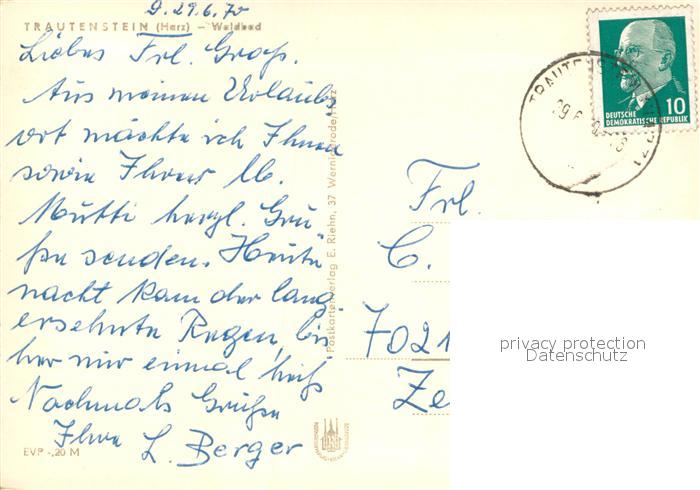 D. 29.6.70
TRAUTENSTEIN (Harz) – Waldbad
Liebes Frl. Grap.
Aus meinen Urlaubs
ort möchte ich Ihnen
sowie Ihrer lb.
Mutti herzl. Grü-
ße senden. Heute
nacht kam der lang
ersehnte Regen, bis
her nur einmal heiß
Nochmals Grüße
Ihre L. Berger
EVP -,20 M
Postkartenverlag E. Riehn, 37 Wernigerode/Harz
TRAUTENSTEIN
3711
DEUTSCHE
DEMOKRATISCHE REPUBLIK
10
Frl.
C.
7021
Ze
privacy protection
Datenschutz